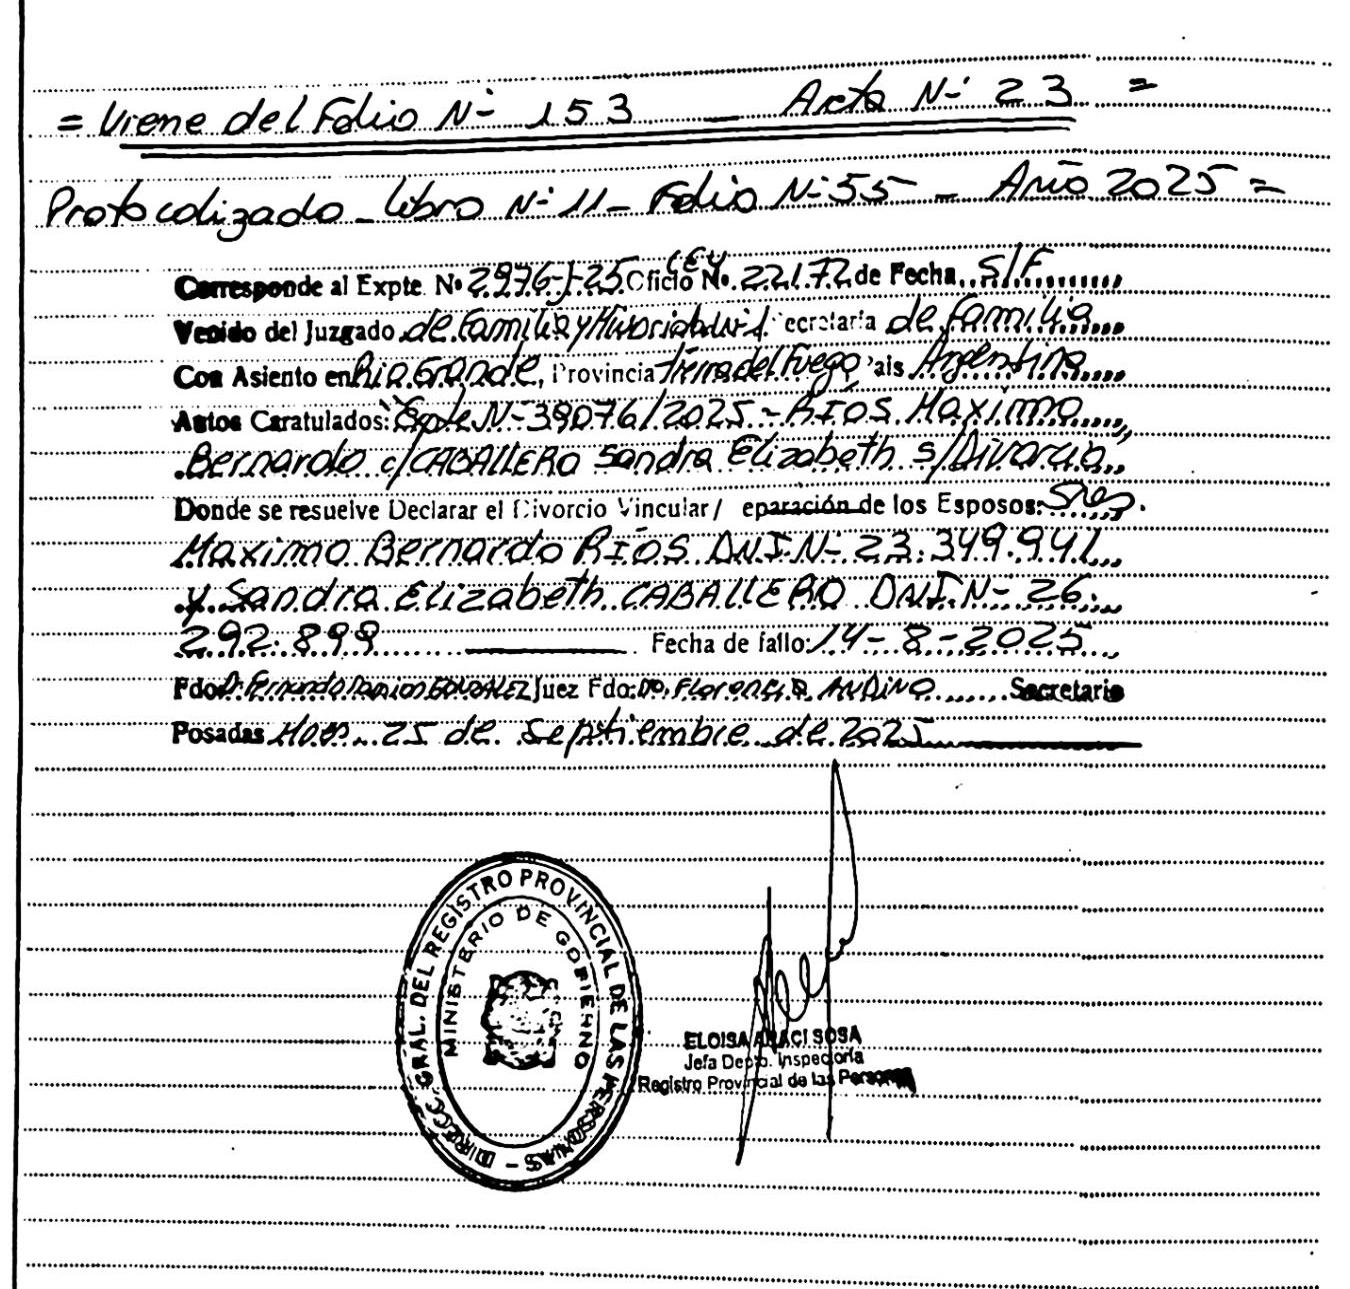 = Viene del Folio N° 153 — Acta N° 23 =
Protocolizado - Libro N° 11 - Folio N° 55 - Año 2025 =
Corresponde al Expte. N° 2976-J-25 Oficio LEY N°. 22.172 de Fecha S/F
Venido del Juzgado de Familia y Minoridad N° 1 Secretaría de Familia
Con Asiento en Rio Grande, Provincia Tierra del Fuego País Argentina
Autos Caratulados: "Expte N° 39076/2025 - RIOS Maximo
Bernardo c/ CABALLERO Sandra Elizabeth s/ Divorcio
Donde se resuelve Declarar el Divorcio Vincular/ eparación de los Esposos: Sres.
Maximo Bernardo RIOS DNI N° 23.349.941
y Sandra Elizabeth CABALLERO DNI N° 26.
292.899 Fecha de fallo: 14-8-2025
Fdo. Dr. Fernando GONZALEZ Juez Fdo: Dra. Florencia ANDINO Secretario
Posadas Mnes. 25 de Septiembre de 2025
DIRECC. GRAL. DEL REGISTRO PROVINCIAL DE LAS PERSONAS -
MINISTERIO DE GOBIERNO
ELOISA ARACI SOSA
Jefa Depto. Inspectoría
Registro Provincial de las Personas